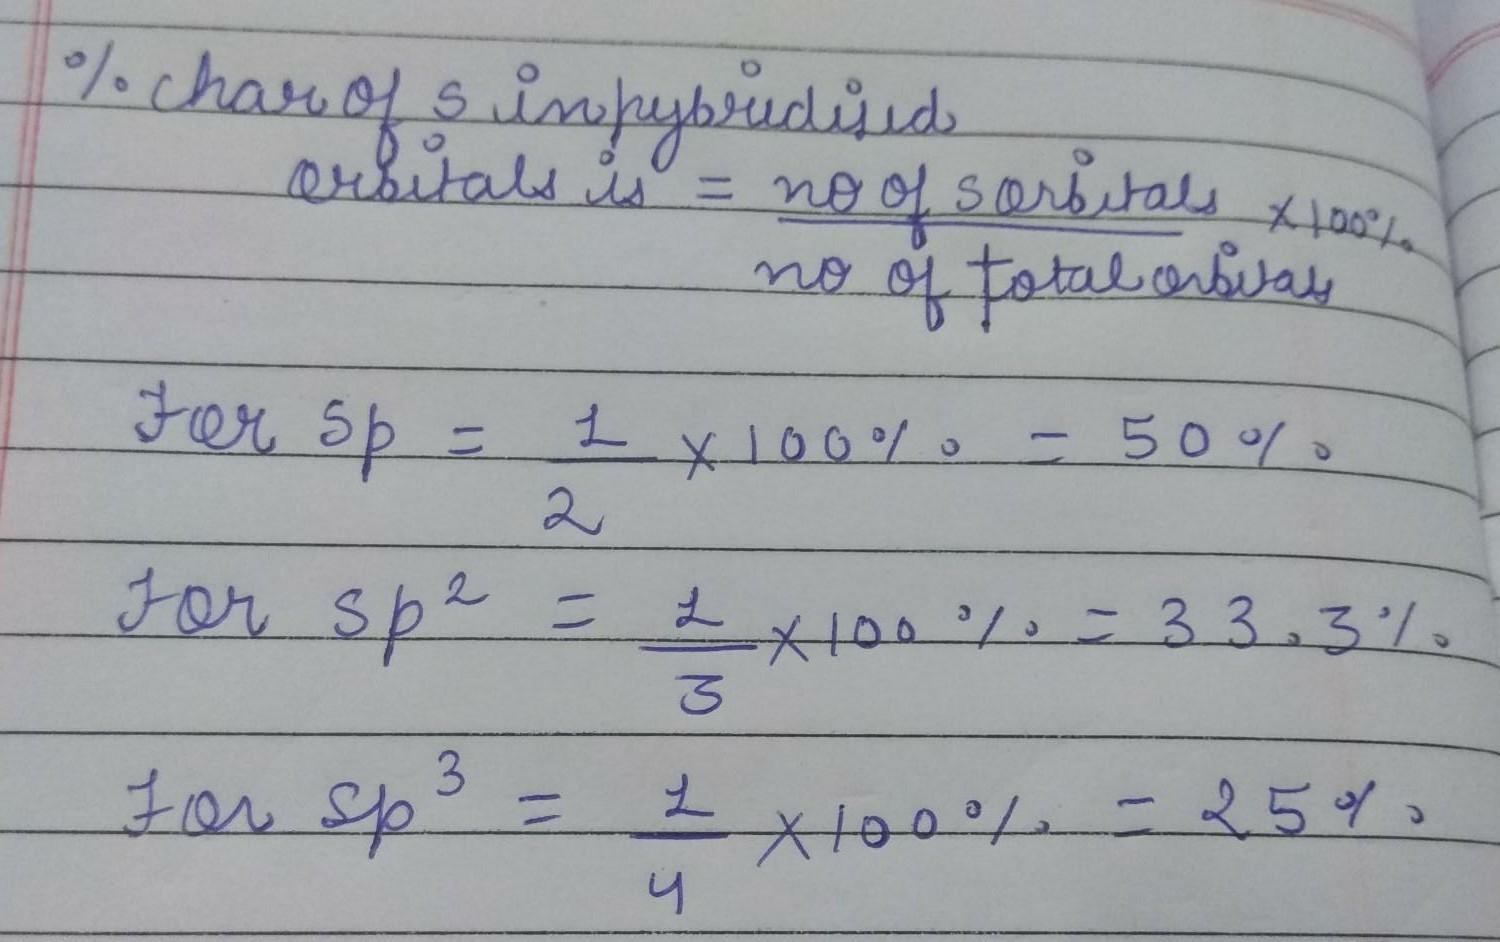 % char of s in hybridised
orbitals is = no of s orbitals × 100%
no of total orbitals
For sp = 1/2 × 100% = 50%
For sp² = 1/3 × 100% = 33.3%
For sp³ = 1/4 × 100% = 25%